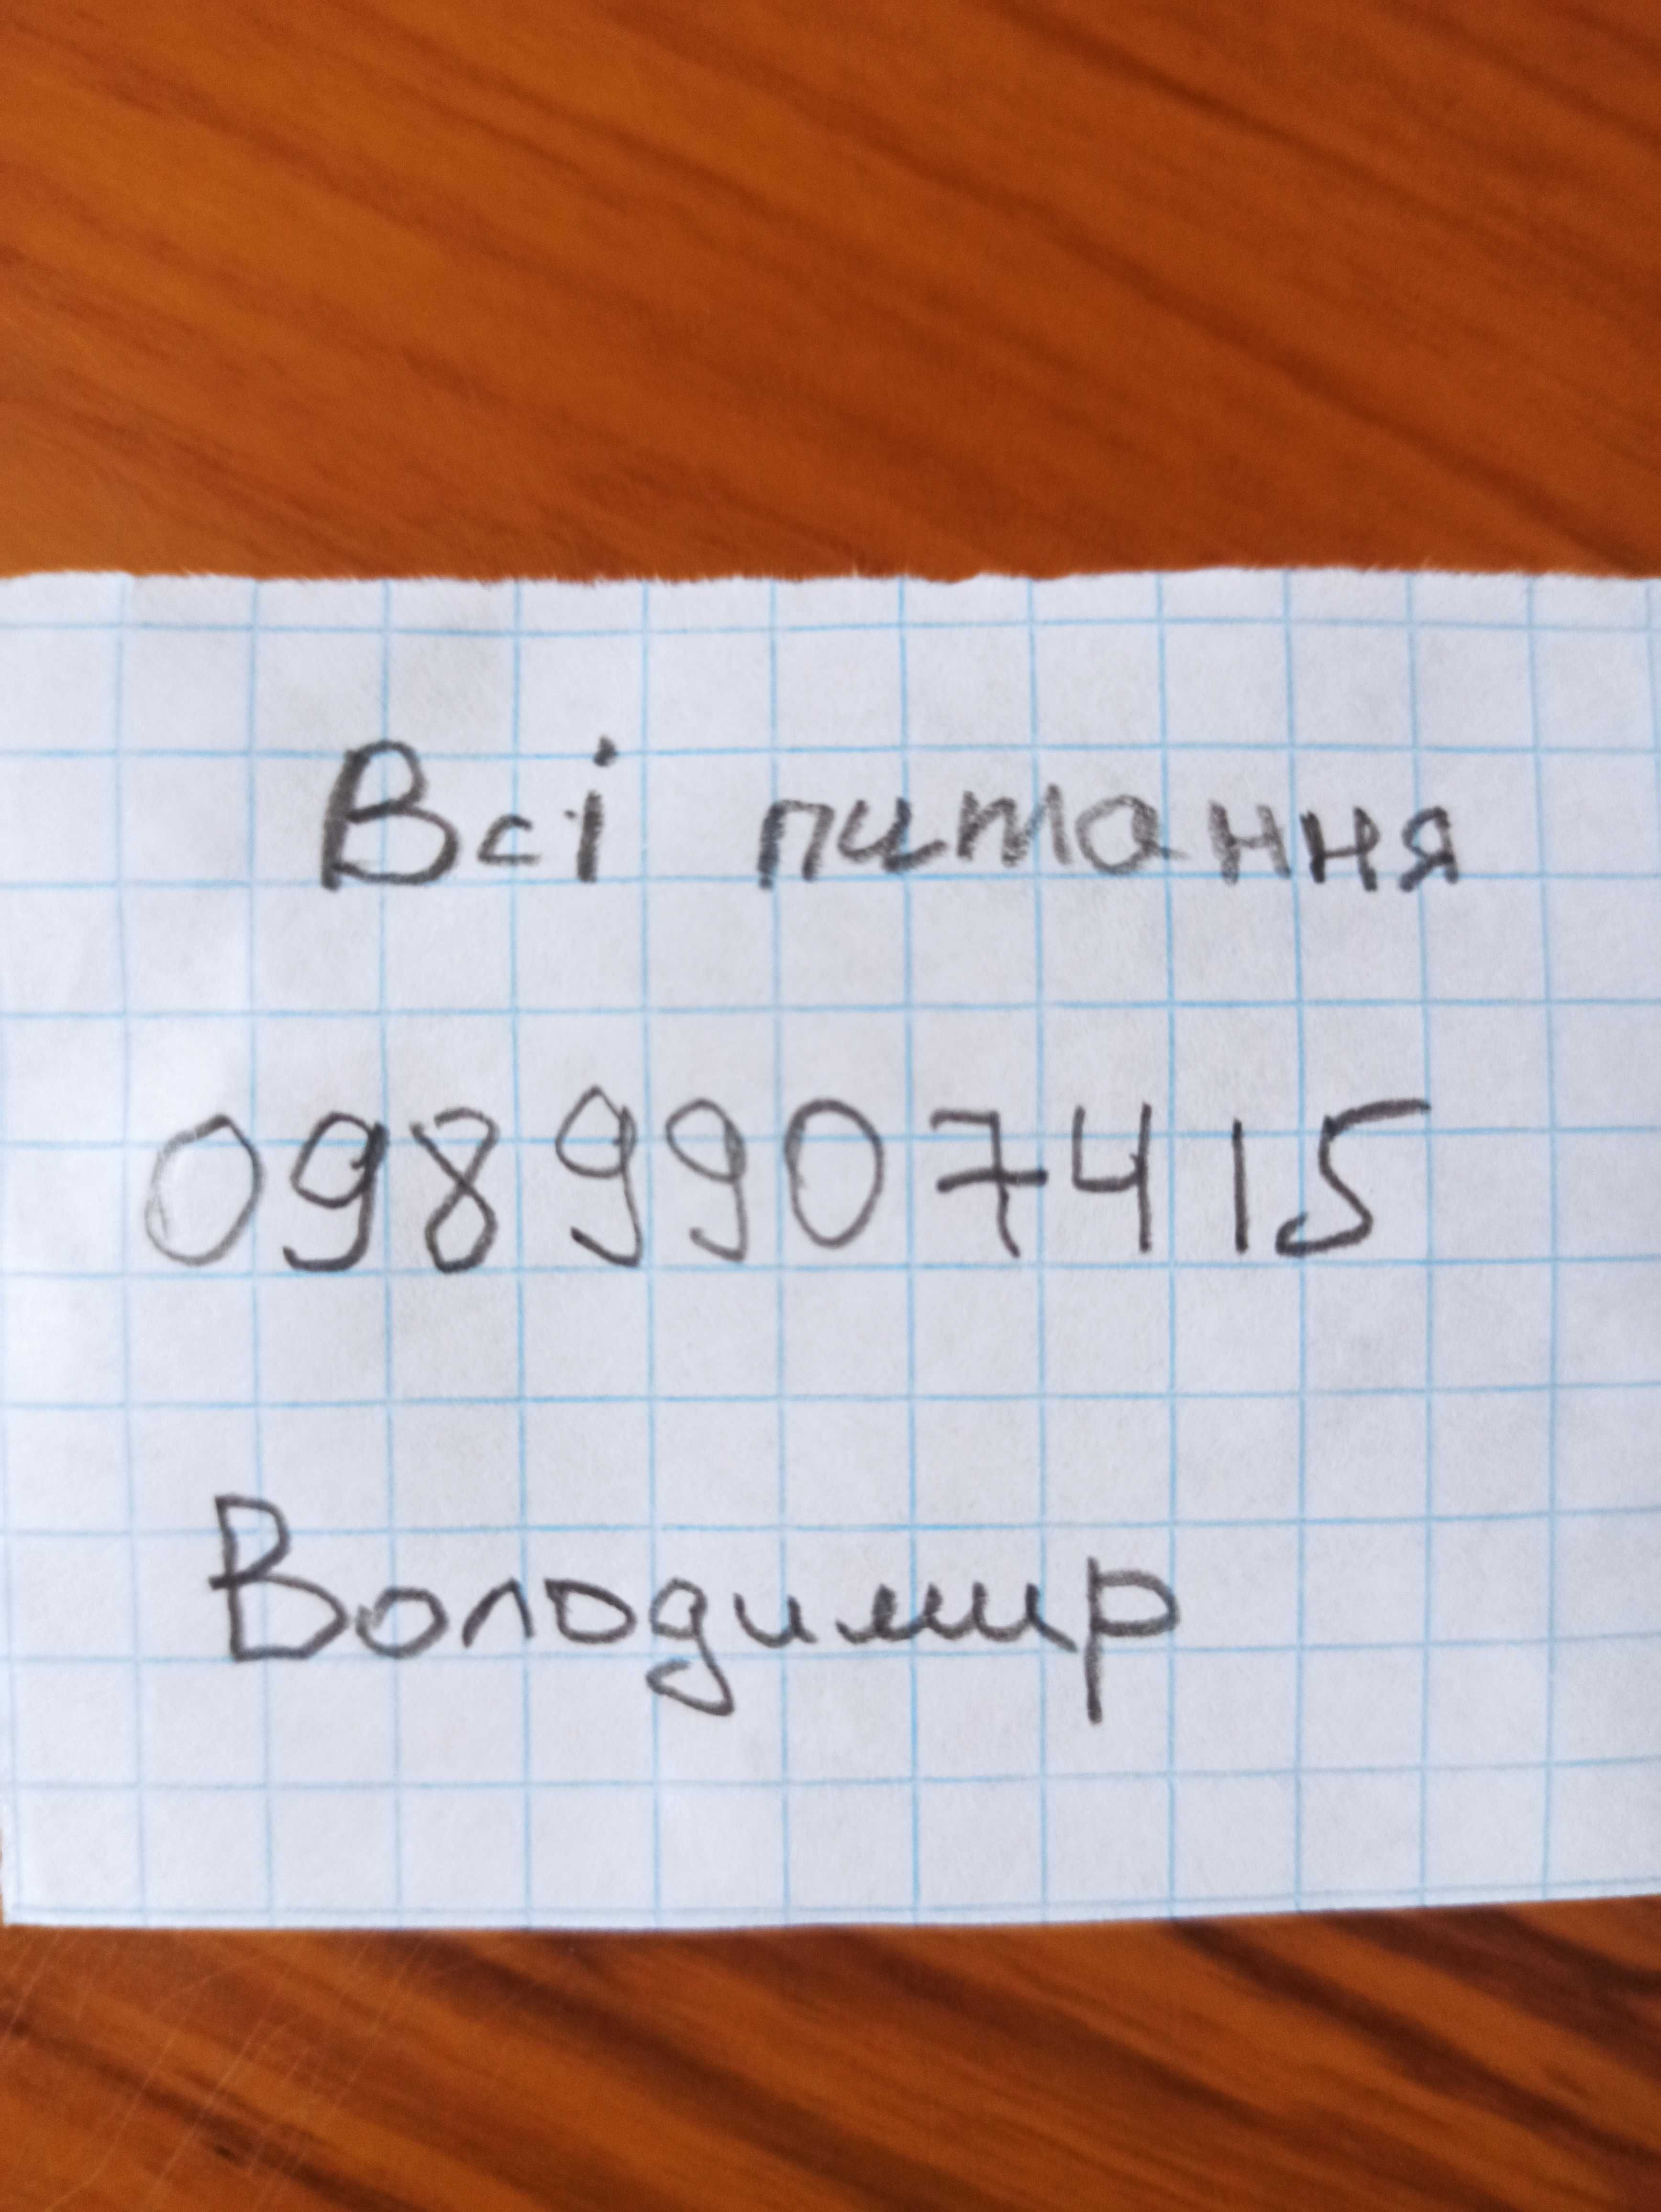 Всі питання
0989907415
Володимир